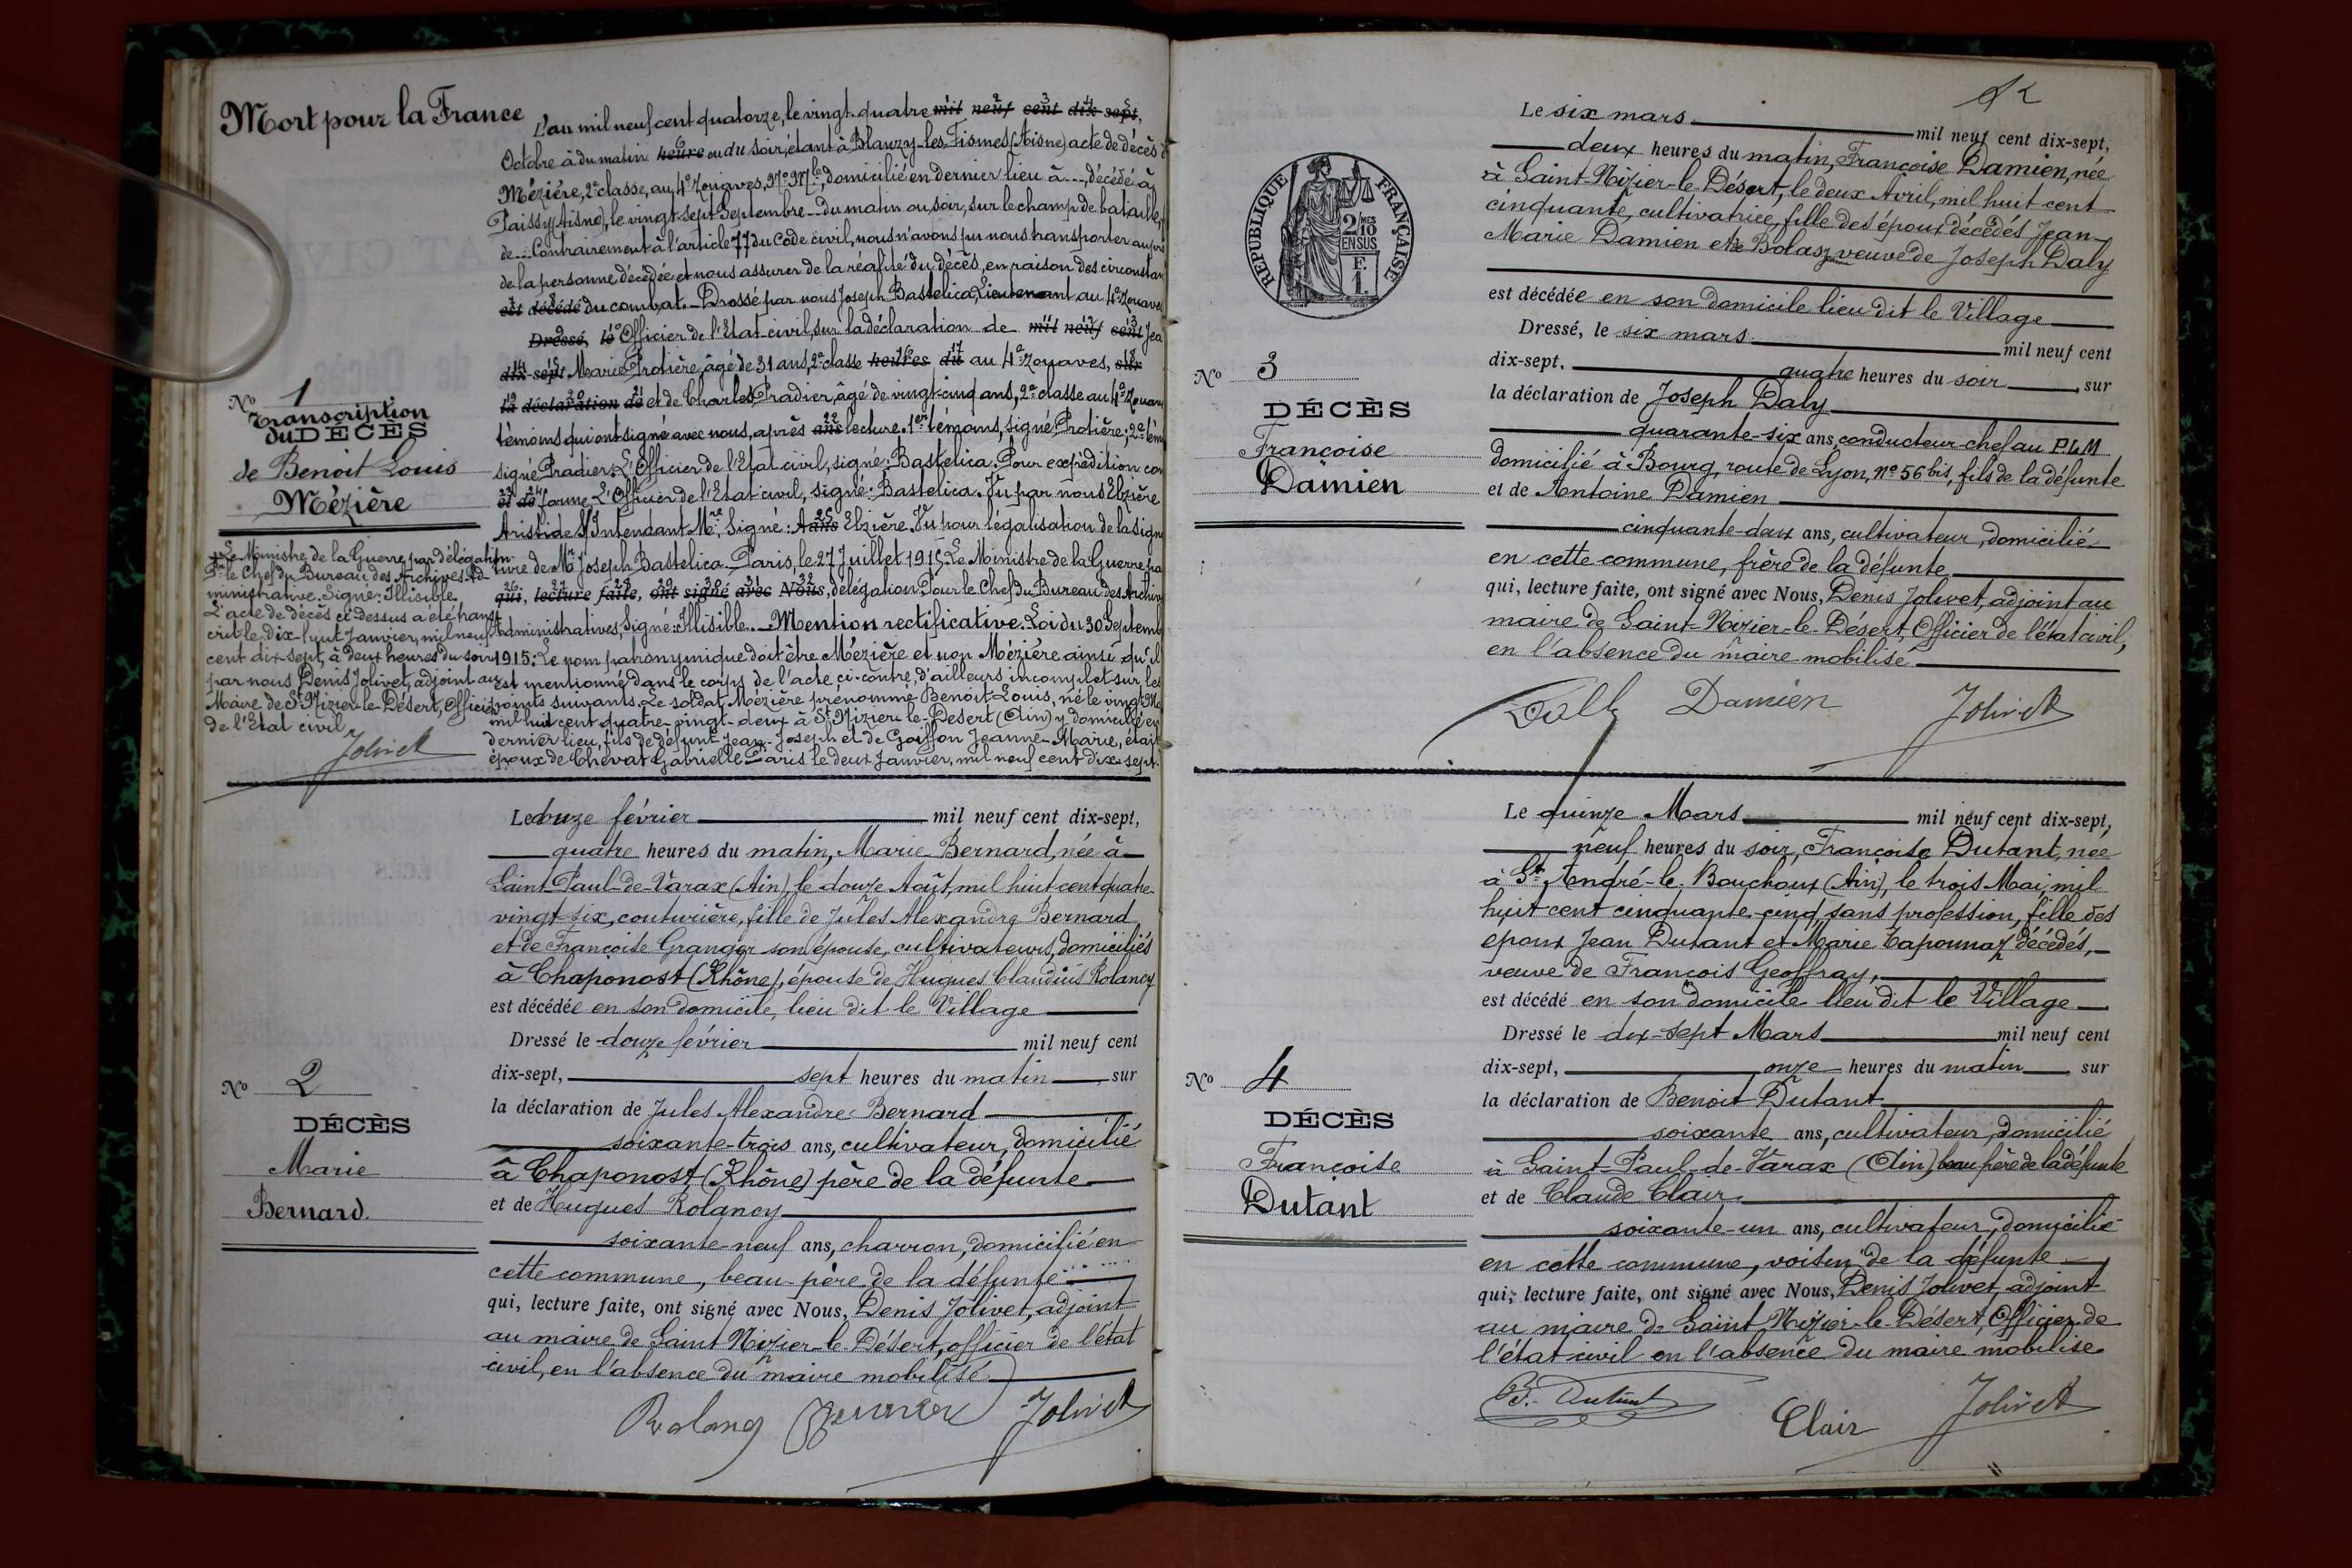 Mort pour la France
L'an mil neuf cent quatorze, le vingt-quatre mil neuf cent dix-sept,
Octobre à du matin heure ou du soir, étant à Blanzy-les-Fismes (Aisne) acte de décès d
Mézière, 2e classe, au 4e Zouaves, domicilié en dernier lieu à ..., décédé à
Paissy (Aisne), le vingt-sept Septembre - du matin ou soir, sur le champ de bataille,
de ... Contrairement à l'article 77 du Code civil, nous n'avons pu nous transporter auprè
de la personne décédée et nous assurer de la réalité du décès, en raison des circonstan
est décédé du combat. Dressé par nous Joseph Bastelica, Lieutenant au 4e Zouave
Dressé, le Officier de l'Etat civil, sur la déclaration de mil neuf cent Jea
dix-sept Marie Protière, âgé de 31 ans, 2e classe heures du au 4e Zouaves, sur
la déclaration de et de Charles Pradier, âgé de vingt-cinq ans, 2e classe au 4e Zouav
témoins qui ont signé avec nous, après ans lecture. 1er témoins, signé Protière; 2e tém
signé Pradier. L'Officier de l'Etat civil, signé: Bastelica. Pour expédition con
et de forme. L'Officier de l'Etat civil, signé: Bastelica. Vu par nous Ebzière
Aristide S/Intendant Mre Signé: A ans Ebzière. Vu pour légalisation de la signa
ture de Mr Joseph Bastelica. Paris, le 27 Juillet 1915. Le Ministre de la Guerre, pa
qui, lecture faite, ont signé avec Nous, délégation Pour le Chef du Bureau des Archive
administratives, Signé: Illisible. Mention rectificative. Loi du 30 Septemb
1915: Le nom patronymique doit être Mézière et non Mézière ainsi qu'il
est mentionné dans le corps de l'acte ci-contre, d'ailleurs incomplet sur les
points suivants. Le soldat Mézière prénommé Benoit Louis, né le vingt M
mil huit cent quatre-vingt-deux à St Nizier-le-Désert (Ain) y domicilié en
dernier lieu, fils de défunt Jean-Joseph et de Goiffon Jeanne-Marie, était
époux de Chevat Gabrielle Paris le deux Janvier, mil neuf cent dix-sept.
No 1
Transcription
du DÉCÈS
de Benoit Louis
Mézière
Le Ministre de la Guerre par délégation
Pr le Chef du Bureau des Archives Ad-
ministrative. Signé: Illisible.
L'acte de décès ci-dessus a été trans-
crit le dix-huit Janvier, mil neuf
cent dix-sept, à deux heures du soir
par nous Denis Jolivet, adjoint au
Maire de St Nizier-le-Désert, Officier
de l'Etat civil.
Jolivet
Le douze février mil neuf cent dix-sept,
quatre heures du matin, Marie Bernard, née à
Saint-Paul-de-Varax (Ain), le douze Août, mil huit cent quatre-
vingt-six, couturière, fille de Jules Alexandre Bernard
et de Françoise Granger son épouse, cultivateurs, domiciliés
à Chaponost (Rhône), épouse de Hugues Claudius Rolancy
est décédée en son domicile, lieu dit le Village
Dressé le douze février mil neuf cent
dix-sept, sept heures du matin, sur
la déclaration de Jules Alexandre Bernard
soixante-trois ans, cultivateur, domicilié
à Chaponost (Rhône) père de la défunte
et de Hugues Rolancy
soixante-neuf ans, charron, domicilié en
cette commune, beau-père de la défunte
qui, lecture faite, ont signé avec Nous, Denis Jolivet, adjoint
au maire de Saint Nizier-le-Désert, officier de l'état
civil, en l'absence du maire mobilisé
No 2
DÉCÈS
Marie
Bernard.
Jolivet
REPUBLIQUE FRANÇAISE
2/10 MES
EN SUS
F.
1.
Le six mars mil neuf cent dix-sept,
deux heures du matin, Françoise Damien, née
à Saint-Nizier-le-Désert, le deux Avril, mil huit cent
cinquante, cultivatrice, fille des époux décédés Jean-
Marie Damien et Bolasz veuve de Joseph Daly
est décédée en son domicile lieu dit le Village
Dressé, le six mars mil neuf cent
dix-sept, quatre heures du soir, sur
la déclaration de Joseph Daly
quarante-six ans, conducteur-chef au PLM
domicilié à Bourg, route de Lyon, no 56 bis, fils de la défunte
et de Antoine Damien
cinquante-deux ans, cultivateur, domicilié
en cette commune, frère de la défunte
qui, lecture faite, ont signé avec Nous, Denis Jolivet, adjoint au
maire de Saint-Nizier-le-Désert, Officier de l'état civil,
en l'absence du maire mobilisé
No 3
DÉCÈS
Françoise
Damien
Damien Jolivet
Le quinze Mars mil neuf cent dix-sept,
neuf heures du soir, Françoise Dutant, née
à St André-le-Bouchoux (Ain), le trois Mai, mil
huit cent cinquante-cinq, sans profession, fille des
époux Jean Dutant et Marie Taponnaz décédés,
veuve de François Geoffray,
est décédé en son domicile lieu dit le Village
Dressé le dix-sept Mars mil neuf cent
dix-sept, onze heures du matin, sur
la déclaration de Benoit Dutant
soixante ans, cultivateur, domicilié
à Saint-Paul-de-Varax (Ain), beau frère de la défunte
et de Claude Clair
soixante-un ans, cultivateur, domicilié
en cette commune, voisin de la défunte
qui, lecture faite, ont signé avec Nous, Denis Jolivet, adjoint
au maire de Saint Nizier-le-Désert, Officier de
l'état-civil en l'absence du maire mobilisé
No 4
DÉCÈS
Françoise
Dutant
B. Dutant Clair Jolivet